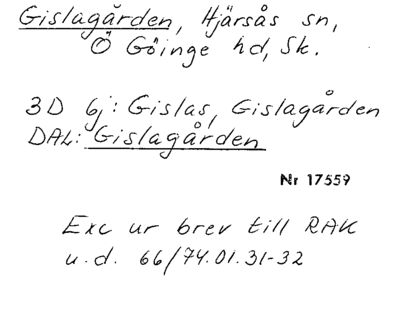 Gislagården, Hjärsås sn,
Ö Göinge hd, Sk.
3D 6j: Gislas, Gislagården
DAL: Gislagården
Nr 17559
Exc ur brev till RAK
u.d. 66/74.01.31-32